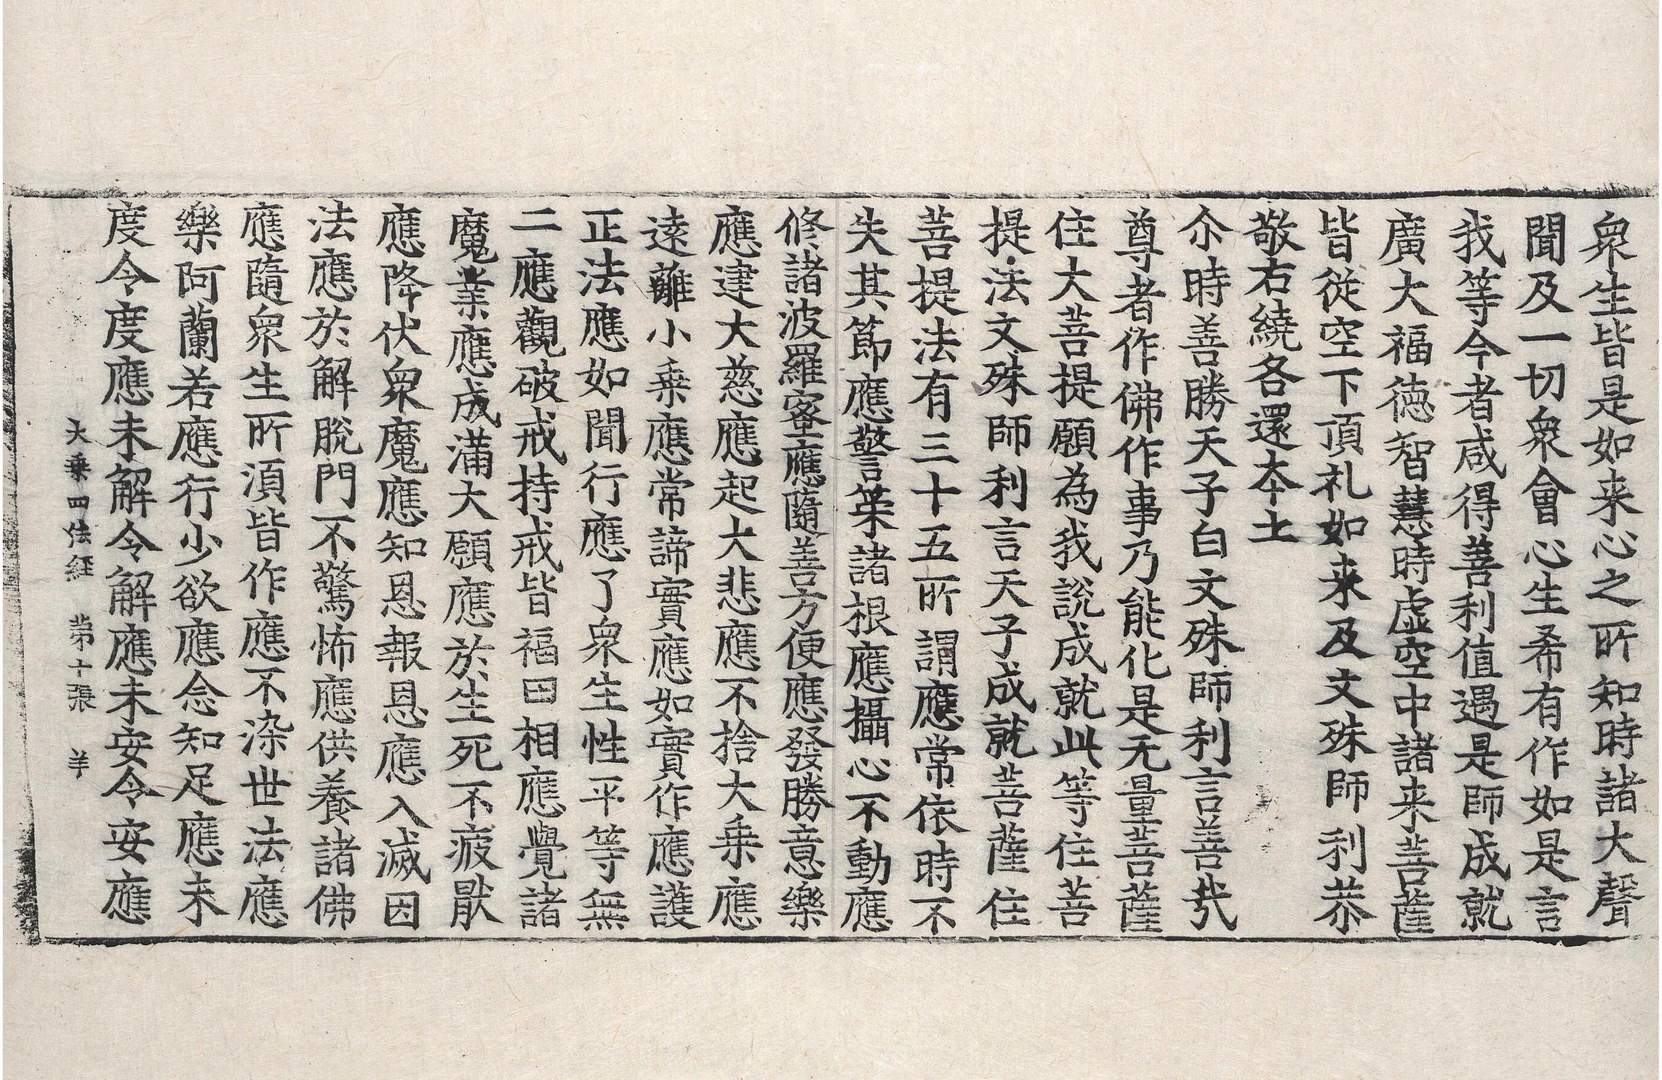 衆生皆是如来心之所知時諸大聲
聞及一切衆會心生希有作如是言
我等今者咸得善利值遇是師成就
廣大福德智慧時虛空中諸来菩薩
皆從空下頂礼如来及文殊師利恭
敬右繞各還本土
尒時善勝天子白文殊師利言善㢤
尊者作佛作事乃能化是无量菩薩
住大菩提願為我說成就此等住菩
提法文殊師利言天子成就菩薩住
菩提法有三十五所謂應常依時不
失其節應警策諸根應攝心不動應
修諸波羅蜜應隨善方便應發勝意樂
應建大慈應起大悲應不捨大乗應
遠離小乗應常諦實應如實作應護
正法應如聞行應了衆生性平等無
二應觀破戒持戒皆福田相應覺諸
魔業應成滿大願應於生死不疲猒
應降伏衆魔應知恩報恩應入滅因
法應於解脫門不驚怖應供養諸佛
應隨衆生所須皆作應不染世法應
樂阿蘭若應行少欲應念知足應未
度令度應未解令解應未安令安應
大乗四法經 第十張 羊